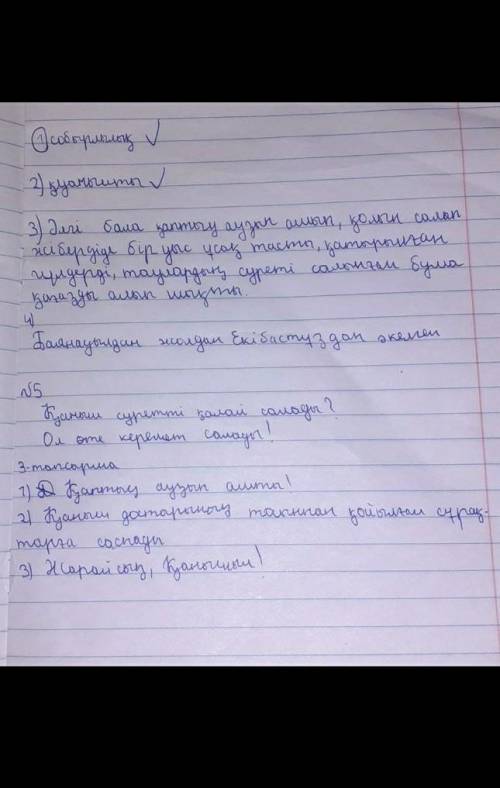 1 собырлылық ✓
2) қуанышты ✓
3) Әлгі бала қаптың аузын ашып, қолын салып
жіберідіде бір уыс ұсақ тасты, қатырылған
гүлдерді, таулардың суреті салынған бума
қағазды алып шықты.
4)
Баянауылдан жолдан Екібастұздан әкелген
№5
Қаныш суретті қалай салады?
Ол өте керемет салады!
3-тапсырма
1) Қаптың аузын ашты!
2) Қаныш достарының тақынан қойылған сұрақ-
тарға саспады
3) Жарайсың, Қанышым!